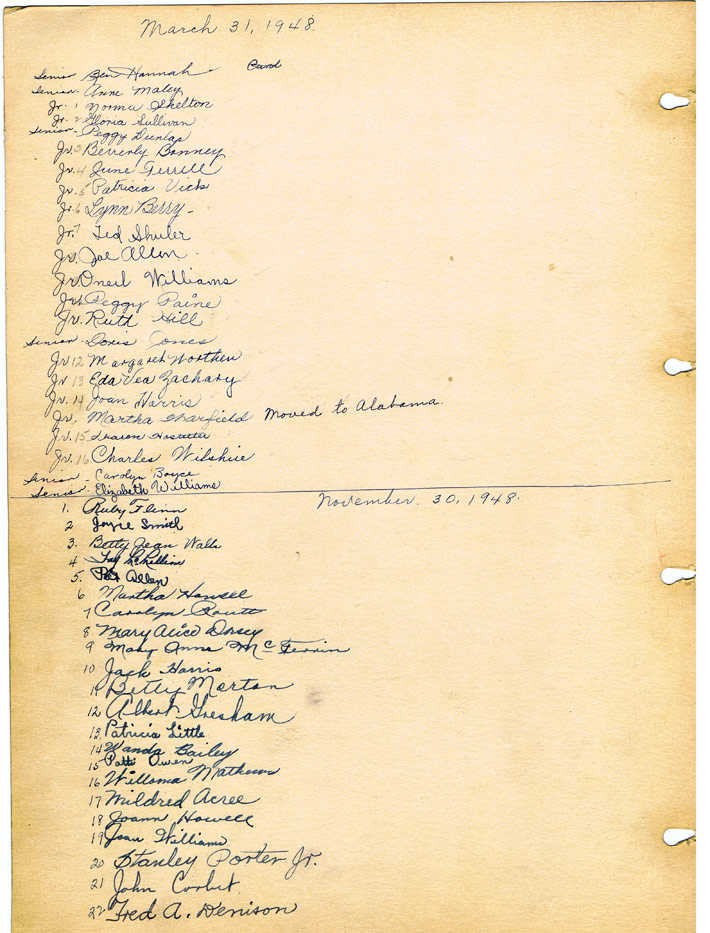 March 31, 1948.
Senior Ben Hannah Carol
Senior. Anne Maley
Jr. 1 Norma Shelton
Jr. 2 Gloria Sullivan
Senior- Peggy Dunlap
Jr. 3 Beverly Bonney
Jr. 4 June Terrell
Jr. 5 Patricia Vick
Jr. 6 Lynn Berry-
Jr. 7 Ted Shuler
Jr. Joe Allen
Jr. Oneil Williams
Jr. Peggy Paine
Jr. Ruth Hill
Senior. Doris Jones
Jr 12 Margaret Worthen
Jr 13 Eda Vea Zachary
Jr. 14 Joan Harris
Jr. Martha Moved to Alabama.
Jr. 15 Sharon
Jr. 16 Charles Wilshire
Senior - Carolyn Boyce
Senior. Elizabeth Williams
November 30, 1948.
1. Ruby Flinn
2 Joyce Smith
3. Betty Jean Walls
4
5. Pat Allen
6 Martha Howell
7 Carolyn Routt
8 Mary Alice Dorsey
9 Mary Anna McFerrin
10 Jack Harris
11 Betty Morton
12 Albert Gresham
13. Patricia Little
14 Wanda Bailey
15 Patti Owen
16 Willoma Mathews
17 Mildred Acree
18 Joann Howell
19 Joan Williams
20 Stanley Porter Jr.
21 John Corbit
22 Fred A. Denison